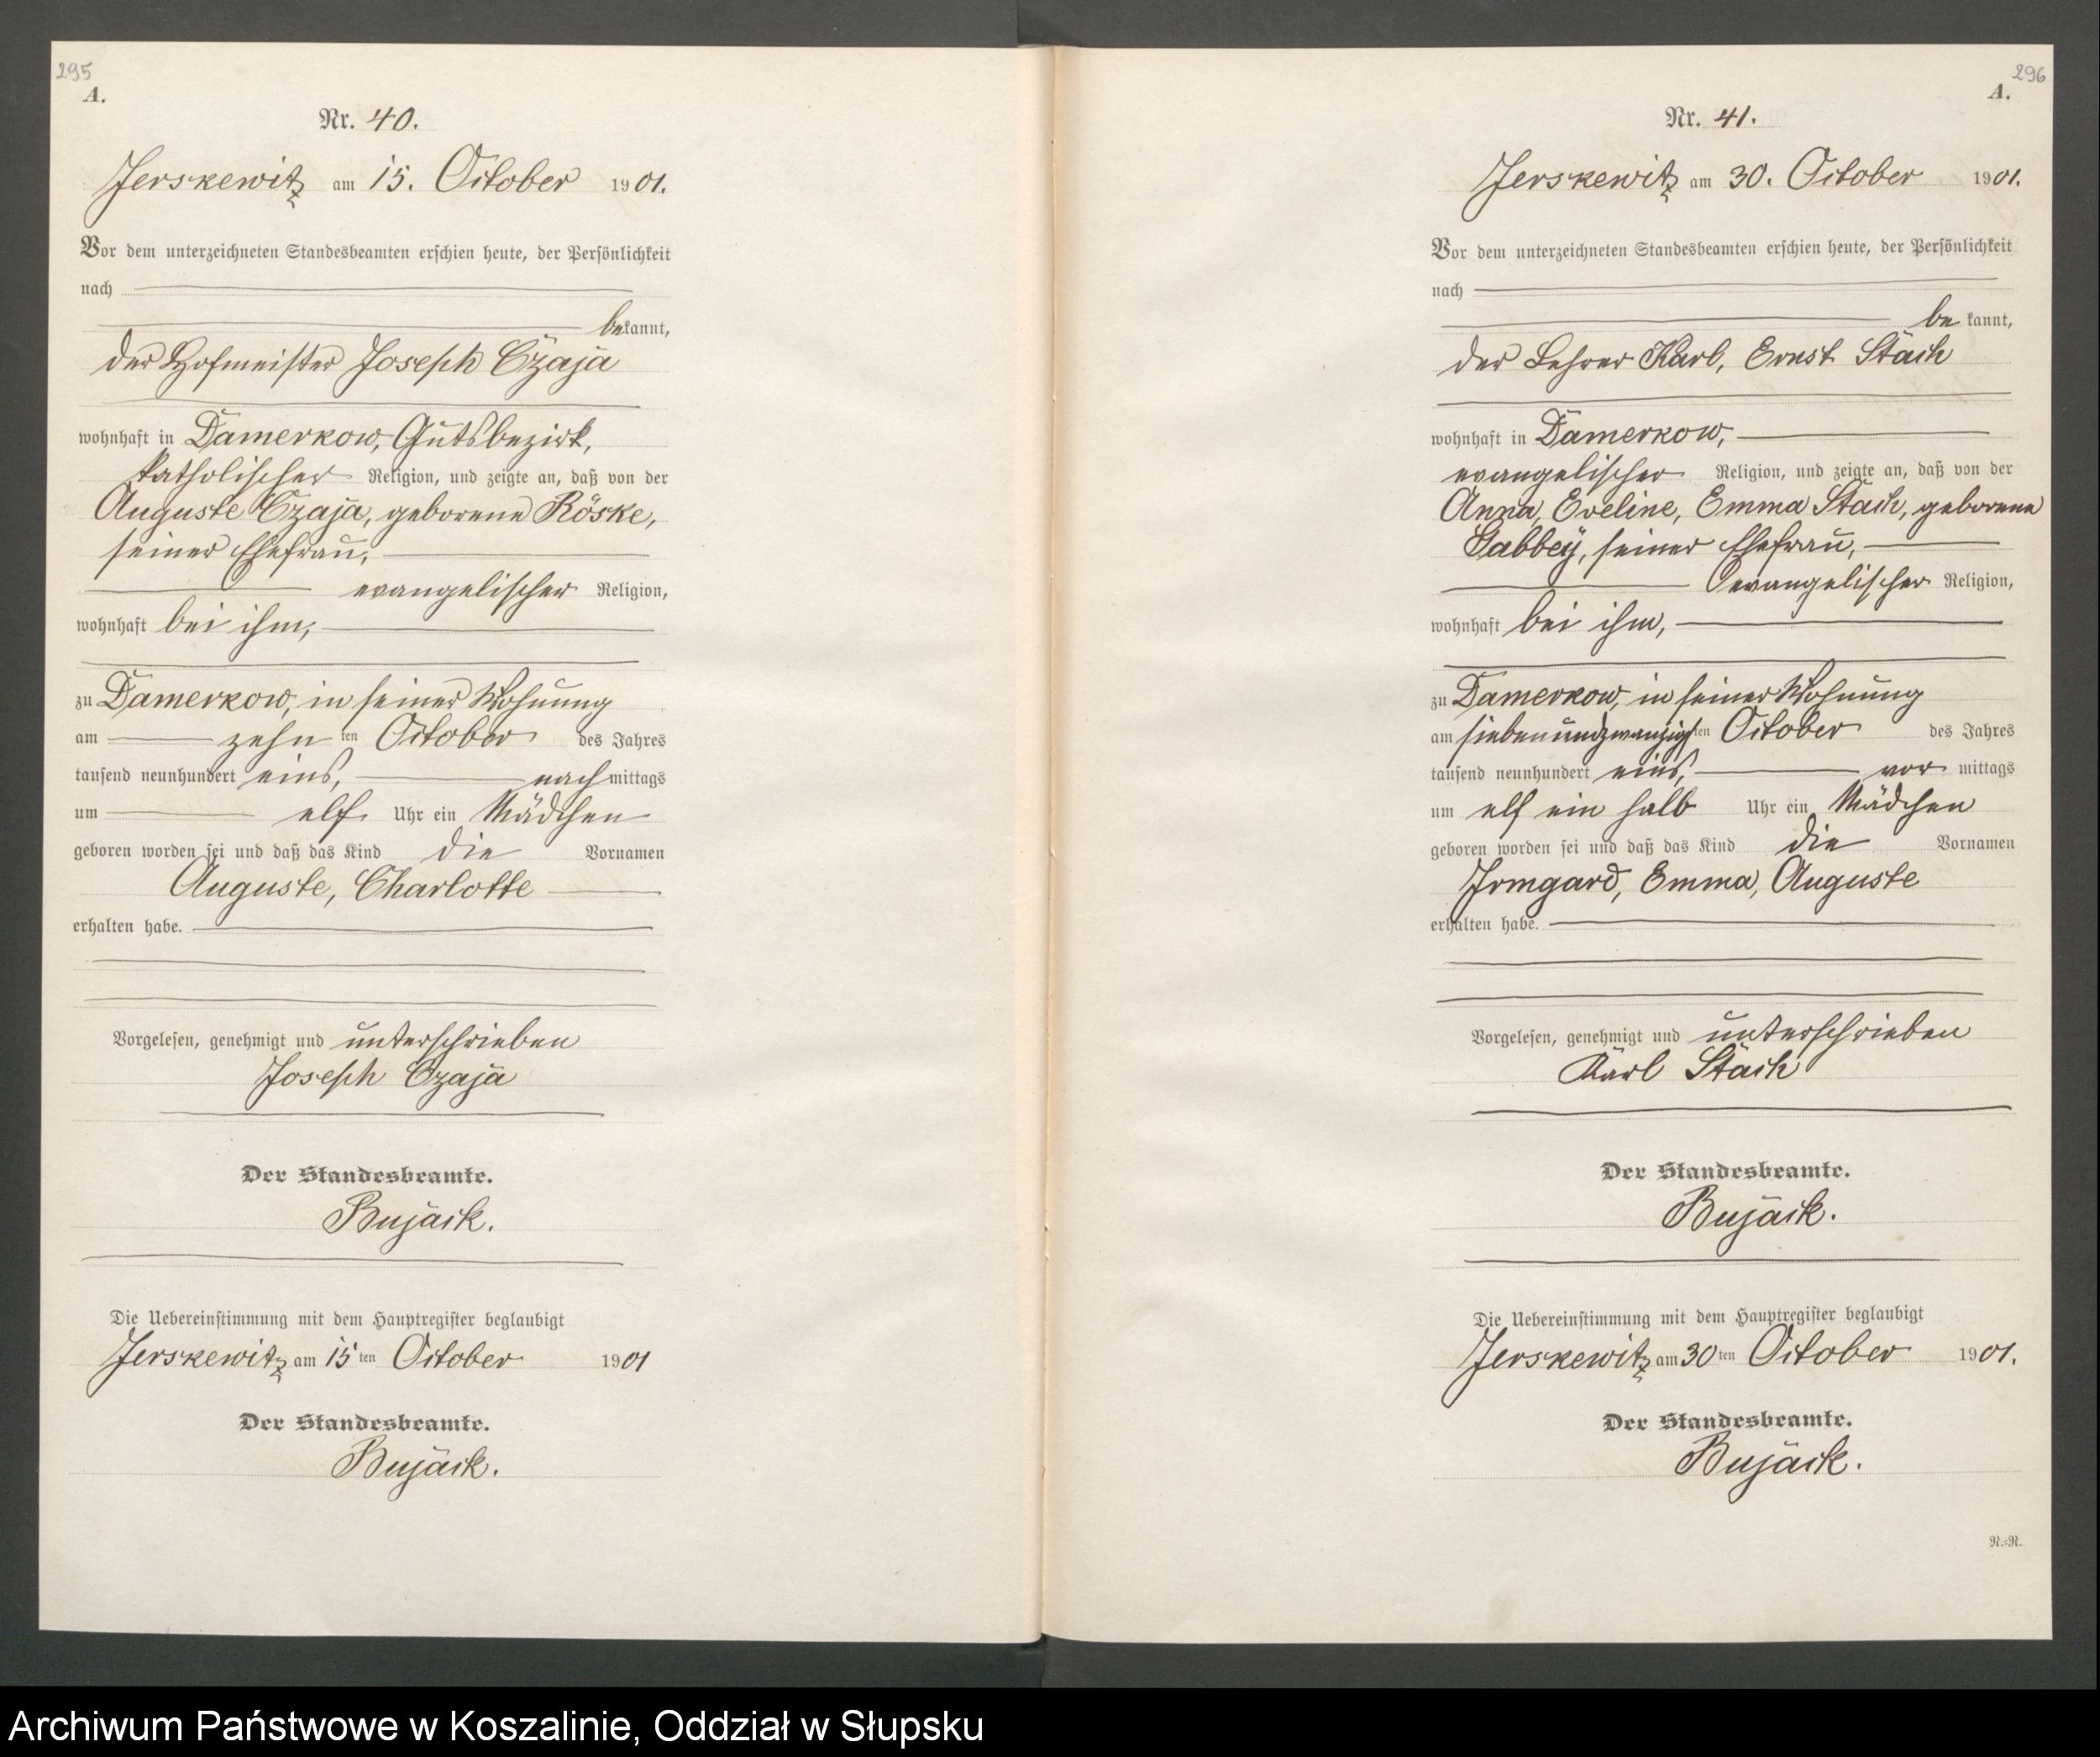 295
A.
Nr. 40.
Jerskewitz am 15. October 1901.
Vor dem unterzeichneten Standesbeamten erschien heute, der Persönlichkeit
nach
bekannt,
der Hofmeister Joseph Czaja
wohnhaft in Damerkow, Gutsbezirk,
katholischer Religion, und zeigte an, daß von der
Auguste Czaja, geborene Röske,
seiner Ehefrau,
evangelischer Religion,
wohnhaft bei ihm,
zu Damerkow, in seiner Wohnung
am zehn ten October des Jahres
tausend neunhundert eins, nachmittags
um elf Uhr ein Mädchen
geboren worden sei und daß das Kind die Vornamen
Auguste, Charlotte
erhalten habe.
Vorgelesen, genehmigt und unterschrieben
Joseph Czaja
Der Standesbeamte.
Bujack.
Die Uebereinstimmung mit dem Hauptregister beglaubigt
Jerskewitz am 15 ten October 1901
Der Standesbeamte.
Bujack.
296
A.
Nr. 41.
Jerskewitz am 30. October 1901.
Vor dem unterzeichneten Standesbeamten erschien heute, der Persönlichkeit
nach
be kannt,
der Lehrer Karl, Ernst Stach
wohnhaft in Damerkow,
evangelischer Religion, und zeigte an, daß von der
Anna, Eveline, Emma Stach, geborene
Gabbey, seiner Ehefrau,
evangelischer Religion,
wohnhaft bei ihm,
zu Damerkow, in seiner Wohnung
am siebenundzwanzigsten October des Jahres
tausend neunhundert eins, vor mittags
um elf ein halb Uhr ein Mädchen
geboren worden sei und daß das Kind die Vornamen
Irmgard, Emma, Auguste
erhalten habe.
Vorgelesen, genehmigt und unterschrieben
Karl Stach
Der Standesbeamte.
Bujack.
Die Uebereinstimmung mit dem Hauptregister beglaubigt
Jerskewitz am 30 ten October 1901.
Der Standesbeamte.
Bujack.
N.=R.
Archiwum Państwowe w Koszalinie, Oddział w Słupsku